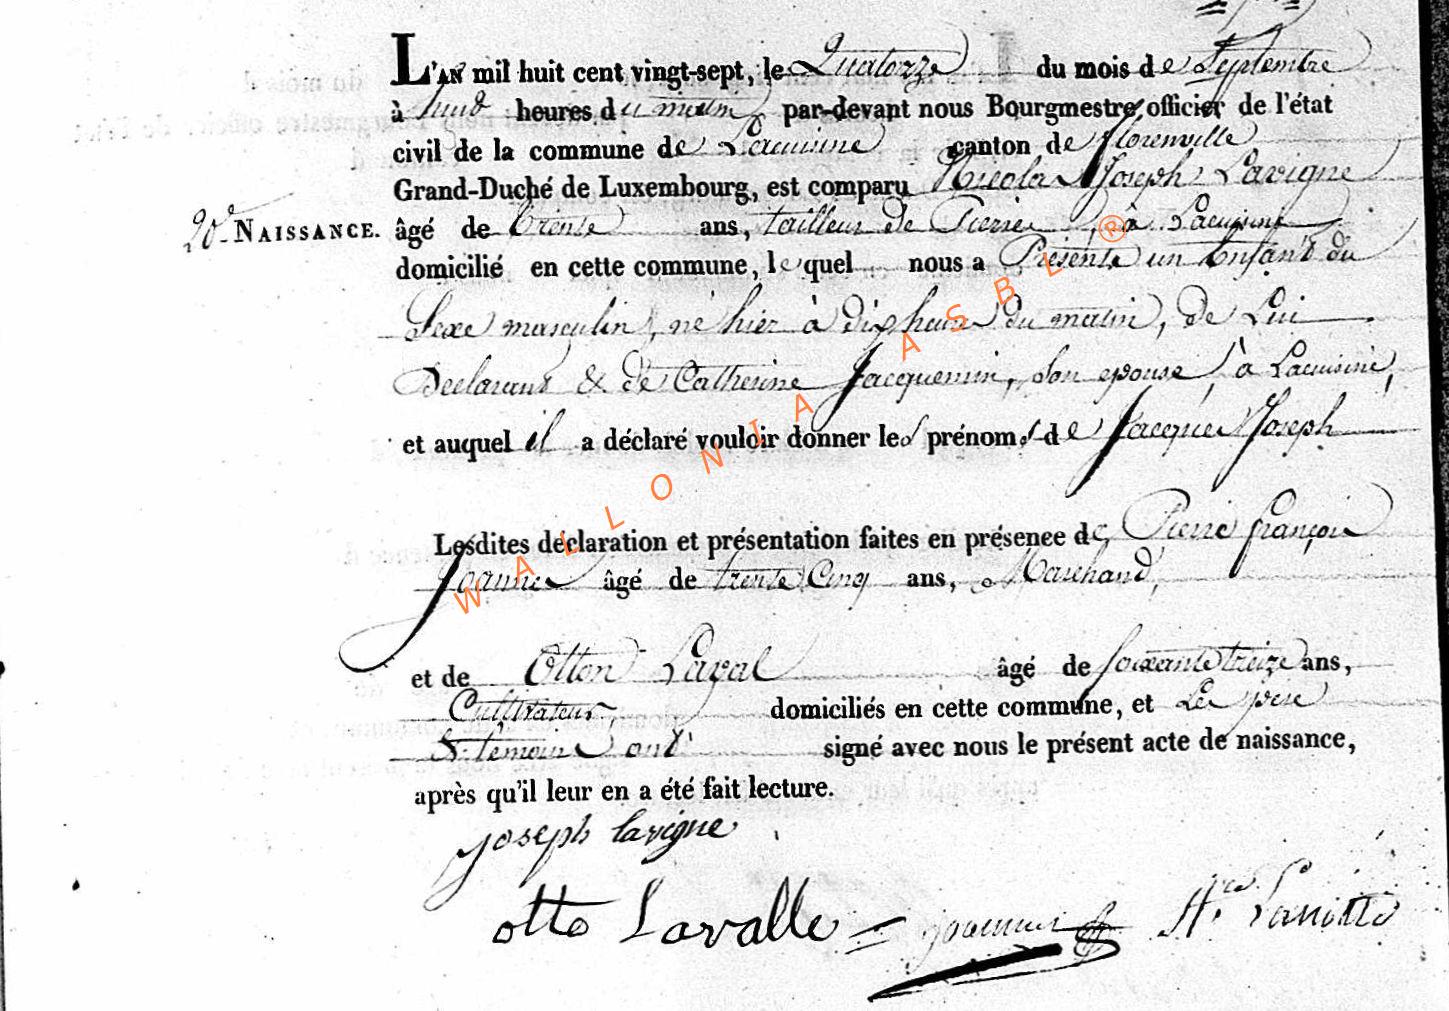 L'AN mil huit cent vingt-sept, le Quatorze du mois de Septembre
à huit heures du matin par-devant nous Bourgmestre officier de l'état
civil de la commune de Lacuisine canton de florenville
Grand-Duché de Luxembourg, est comparu Nicolas Joseph Lavigne
20e NAISSANCE. âgé de trente ans, tailleur de Pierre, à Lacuisine
domicilié en cette commune, lequel nous a Présenté un Enfant du
Sexe masculin, né hier à dix heures du matin, de Lui
Declarant & de Catherine Jacquemin, son epouse, à Lacuisine,
et auquel il a déclaré vouloir donner les prénoms de Jacques Joseph
Lesdites déclaration et présentation faites en présence de Pierre françois
Joannes âgé de trente Cinq ans, Marchand,
et de Otton Laval âgé de soixante treize ans,
Cultivateur, domiciliés en cette commune, et Les pere
& temoins ont signé avec nous le présent acte de naissance,
après qu'il leur en a été fait lecture.
joseph lavigne
otto Lavalle = joannes
WALLONIA ASBL ®